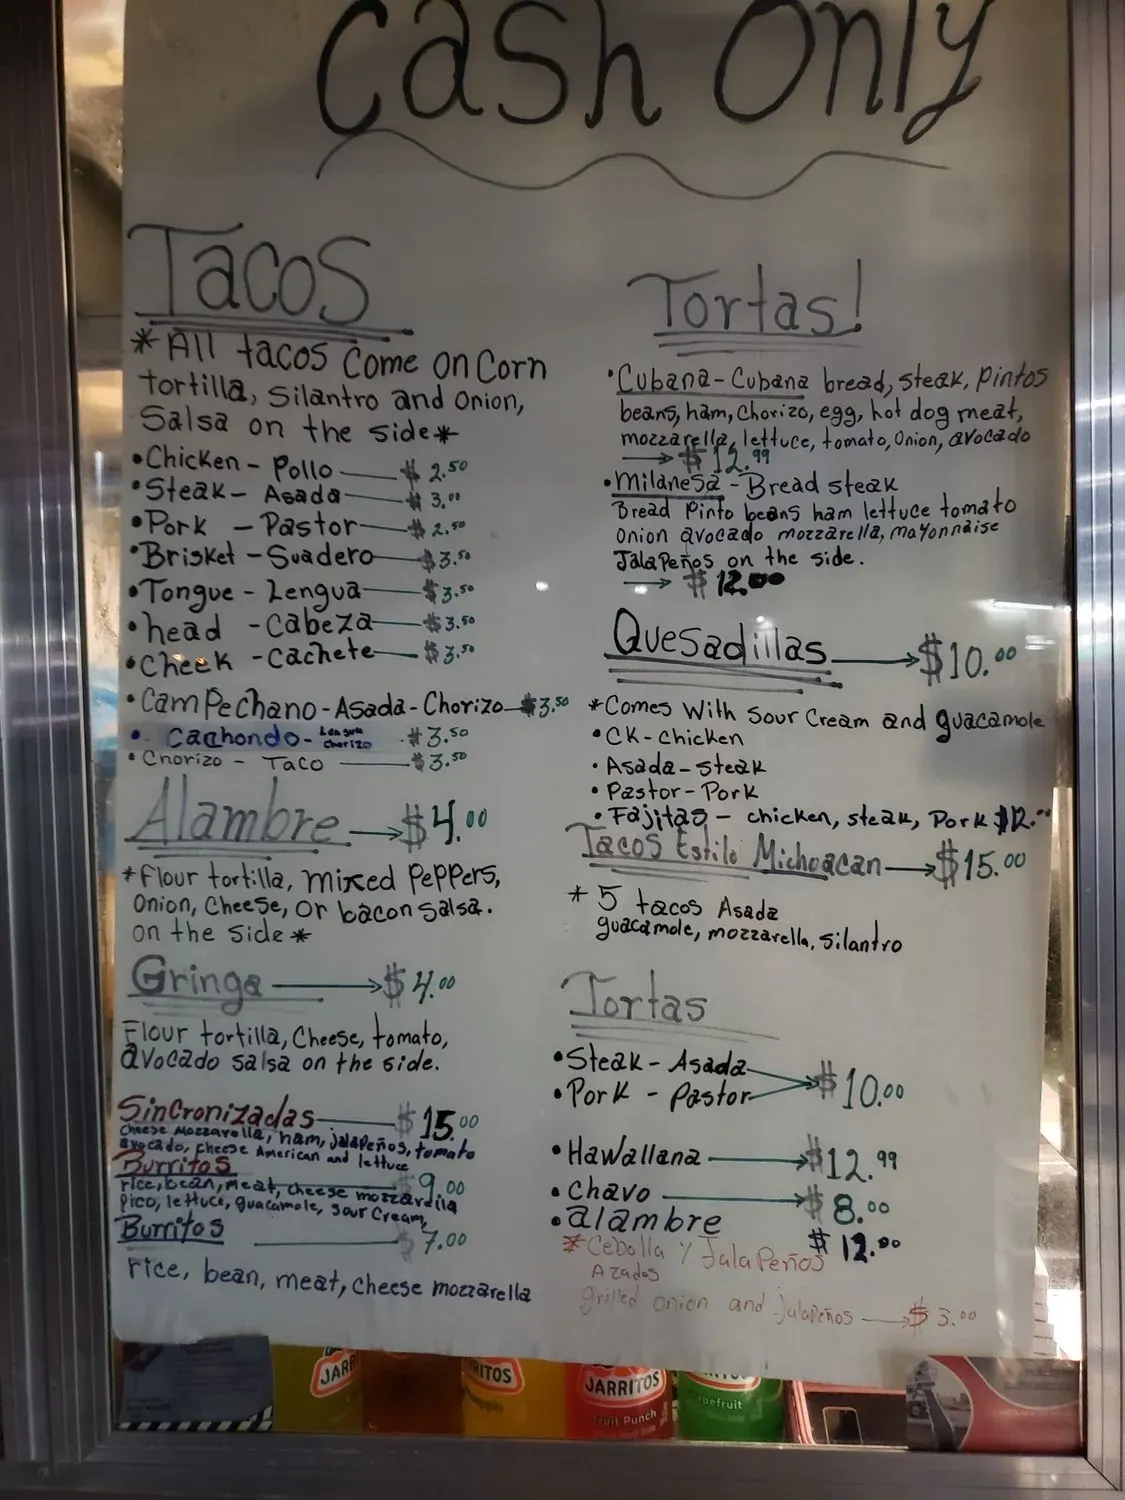 Cash Only
Tacos
*All tacos come on Corn
tortilla, Silantro and onion,
Salsa on the side*
•Chicken - Pollo $2.50
•Steak - Asada $3.00
•Pork - Pastor $2.50
•Brisket - Suadero $3.50
•Tongue - Lengua $3.50
•head - cabeza $3.50
•cheek - cachete $3.50
•CamPechano - Asada - Chorizo $3.50
•Cachondo - Lengua Chorizo $3.50
•Chorizo - Taco $3.50
Alambre → $4.00
*flour tortilla, mixed Peppers,
onion, Cheese, or bacon Salsa.
on the side*
Gringa → $4.00
Flour tortilla, Cheese, tomato,
avocado salsa on the side.
Sincronizadas $15.00
Cheese Mozzarella, ham, jalaPeños, tomato
avocado, cheese American and lettuce
Burritos $9.00
rice, bean, meat, cheese mozzarella
Pico, lettuce, guacamole, sour Cream,
Burritos $7.00
rice, bean, meat, cheese mozzarella
Tortas!
•Cubana - Cubana bread, steak, Pintos
beans, ham, Chorizo, egg, hot dog meat,
mozzarella, lettuce, tomato, onion, avocado
→ $12.99
•Milanesa - Bread steak
Bread Pinto beans ham lettuce tomato
onion avocado mozzarella, mayonnaise
JalaPeños on the side.
→ $12.00
Quesadillas → $10.00
*Comes With Sour Cream and guacamole
•CK-Chicken
•Asada-steak
•Pastor-Pork
•Fajitas - chicken, steak, Pork $12.00
Tacos Estilo Michoacan → $15.00
*5 tacos Asada
guacamole, mozzarella, silantro
Tortas
•Steak - Asada
•Pork - Pastor
$10.00
•Hawallana → $12.99
•chavo → $8.00
•alambre $12.00
*Cebolla Y JalaPeños
Azados
grilled onion and jalaPeños → $3.00
JARRITOS
Fruit Punch